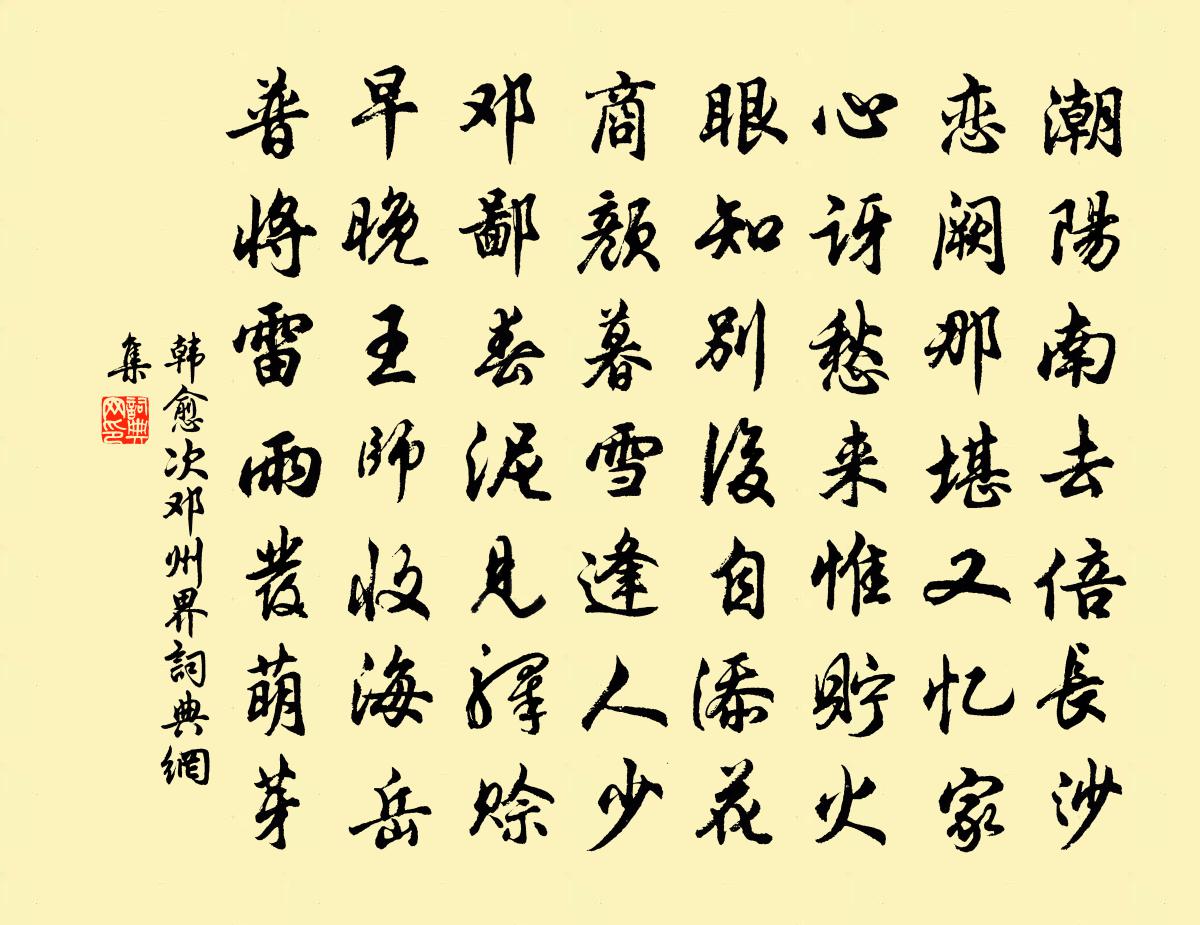 潮陽南去倍長沙
恋阙那堪又忆家
心讶愁来惟貯火
眼知别後自添花
商颜暮雪逢人少
邓鄙春泥見驛赊
早晚王師收海岳
普將雷雨發萌芽
韩愈次邓州界詞典網
集
詞典
网印